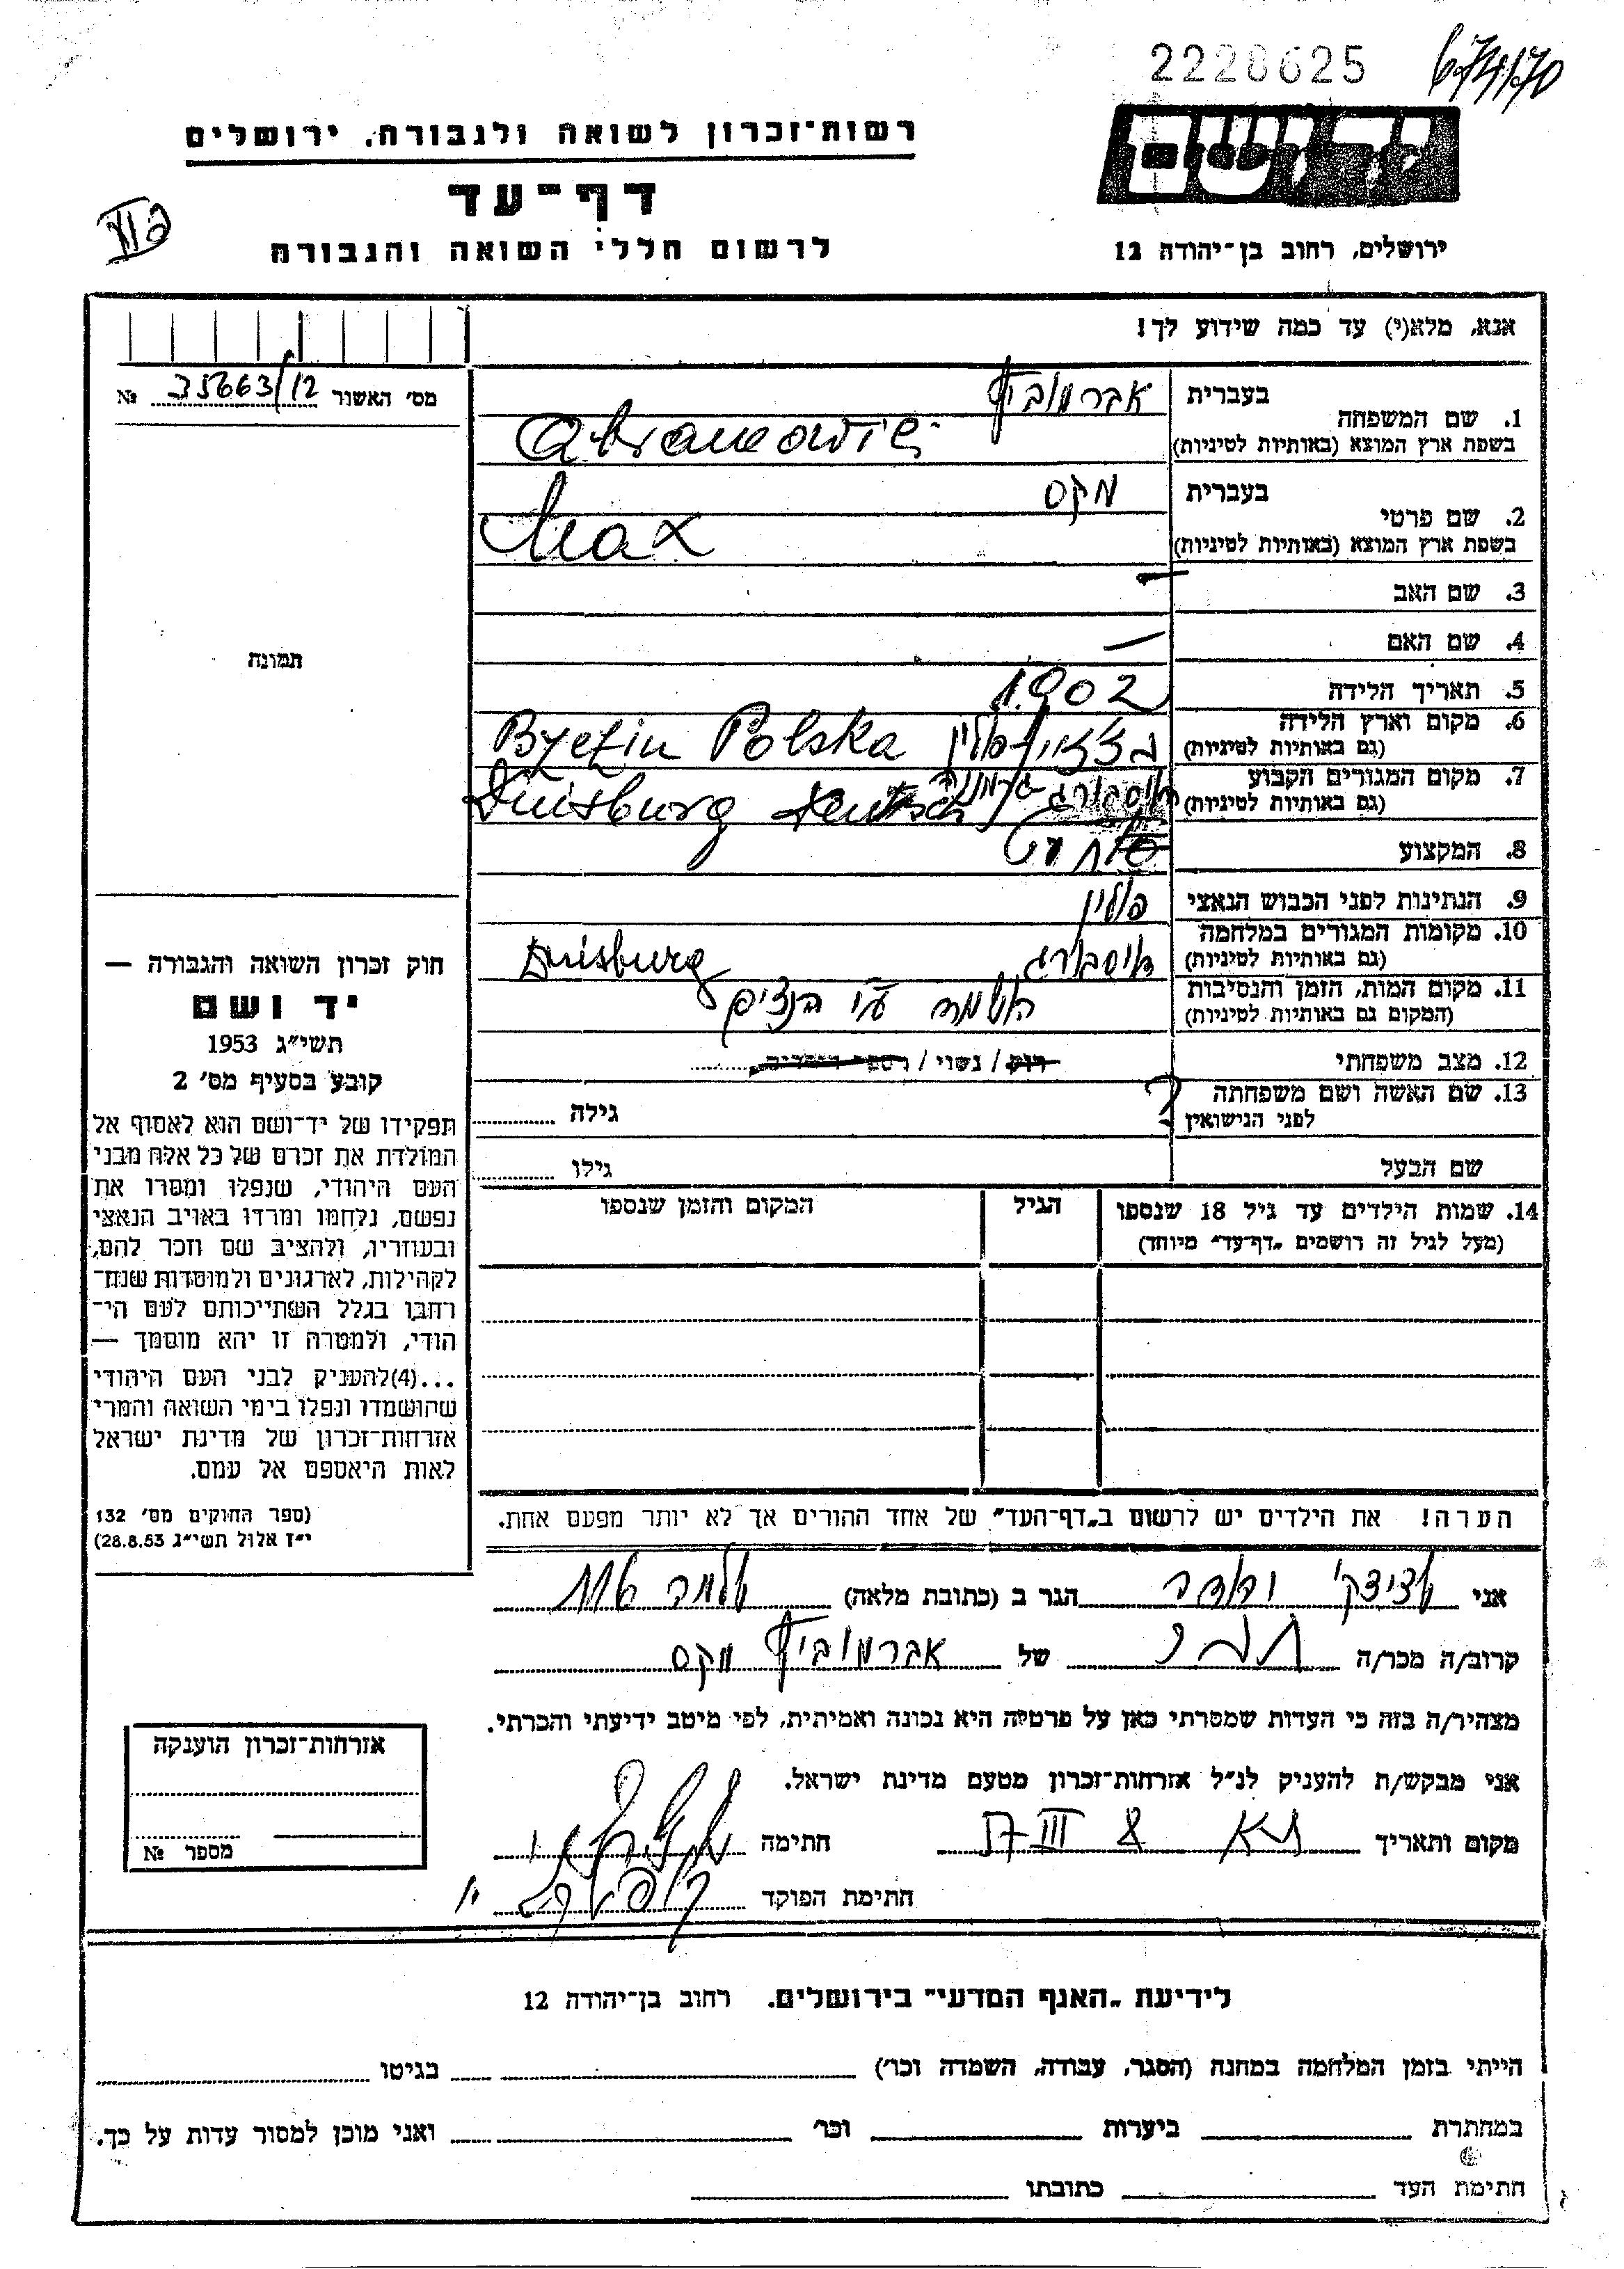 2228625
674/70
יד ושם
רשות־זכרון לשואה ולגבורה, ירושלים
דף־עד
VI
לרשום חללי השואה והגבורה
ירושלים, רחוב בן־יהודה 12
אנא, מלא(י) עד כמה שידוע לך!
מס׳ האשור 35663/12 №
בעברית אברמוביץ
1. שם המשפחה
בשפת ארץ המוצא (באותיות לטיניות) Abramowic
בעברית מקס
2. שם פרטי
בשפת ארץ המוצא (באותיות לטיניות) Max
3. שם האב —
4. שם האם —
תמונה
5. תאריך הלידה 1902
6. מקום וארץ הלידה
(גם באותיות לטיניות) פולין Polska
7. מקום המגורים הקבוע
(גם באותיות לטיניות) דויסבורג גרמניה Duisburg Deutsch
8. המקצוע
9. הנתינות לפני הכבוש הנאצי פולין
10. מקומות המגורים במלחמה
(גם באותיות לטיניות) דויסבורג Duisburg
11. מקום המות, הזמן והנסיבות
(המקום גם באותיות לטיניות) הושמד ע״י הנצים
12. מצב משפחתי רווק / נשוי /
13. שם האשה ושם משפחתה ? גילה
לפני הנישואין
שם הבעל גילו
14. שמות הילדים עד גיל 18 שנספו הגיל המקום והזמן שנספו
(מעל לגיל זה רושמים „דף־עד״ מיוחד)
חוק זכרון השואה והגבורה —
יד ושם
תשי״ג 1953
קובע בסעיף מס׳ 2
תפקידו של יד־ושם הוא לאסוף אל
המולדת את זכרם של כל אלה מבני
העם היהודי, שנפלו ומסרו את
נפשם, נלחמו ומרדו באויב הנאצי
ובעוזריו, ולהציב שם וזכר להם,
לקהילות, לארגונים ולמוסדות שנח־
רחבו בגלל השתייכותם לעם הי־
הודי, ולמטרה זו יהא מוסמך —
...(4)להעניק לבני העם היהודי
שהושמדו ונפלו בימי השואה והמרי
אזרחות־זכרון של מדינת ישראל
לאות היאספם אל עמם.
(ספר החוקים מס׳ 132
י״ז אלול תשי״ג 28.8.53)
הערה! את הילדים יש לרשום ב„דף־העד״ של אחד ההורים אך לא יותר מפעם אחת.
אני הגר ב (כתובת מלאה)
קרוב/ה מכר/ה של אברמוביץ מקס
מצהיר/ה בזה כי העדות שמסרתי כאן על פרטיה היא נכונה ואמיתית, לפי מיטב ידיעתי והכרתי.
אני מבקש/ת להעניק לנ״ל אזרחות־זכרון מטעם מדינת ישראל.
מקום ותאריך ת״א 8 III חתימה
חתימת הפוקד
אזרחות־זכרון הוענקה
מספר №
לידיעת „האגף המדעי״ בירושלים. רחוב בן־יהודה 12
הייתי בזמן המלחמה במחנה (הסגר, עבודה, השמדה וכו׳) בגיטו
במחתרת ביערות וכו׳ ואני מוכן למסור עדות על כך.
חתימת העד כתובתו